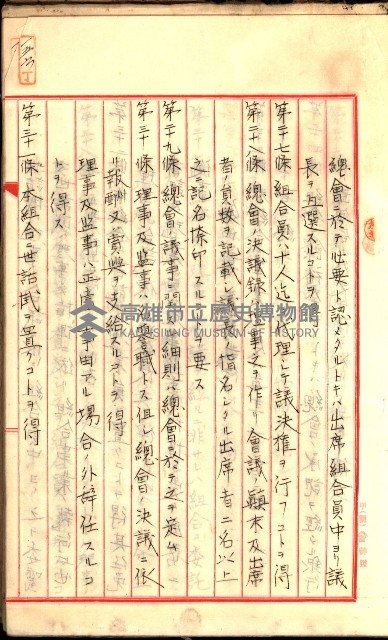 總會ニ於テ必要ト認メタルトキハ出席組合員中ヨリ議
長ヲ互選スルコトヲ得
第二十七條 組合員ハ十人迄 代理シテ議決權ヲ行フコトヲ得
第二十八條 總會ノ決議錄ハ 事之ヲ作リ會議ノ顛末及出席
者ノ員數ヲ記載シ議長ノ指名シタル出席者二名以上
之ニ記名捺印スル ヲ要ス
第二十九條 總會ノ議事ニ關 細則ハ總會ニ於テ之ヲ定ム
第三十條 理事及監事ハ名譽職トス但シ總會ノ決議ニ依
リ報酬又ハ賞與ヲ支給スルコトヲ得
理事及監事ハ正當 事由アル場合ノ外辭任スルコ
トヲ得ス
第三十一條 本組合ニ世話武ヲ置クコトヲ得
高雄市立歷史博物館
KAOHSIUNG MUSEUM OF HISTORY